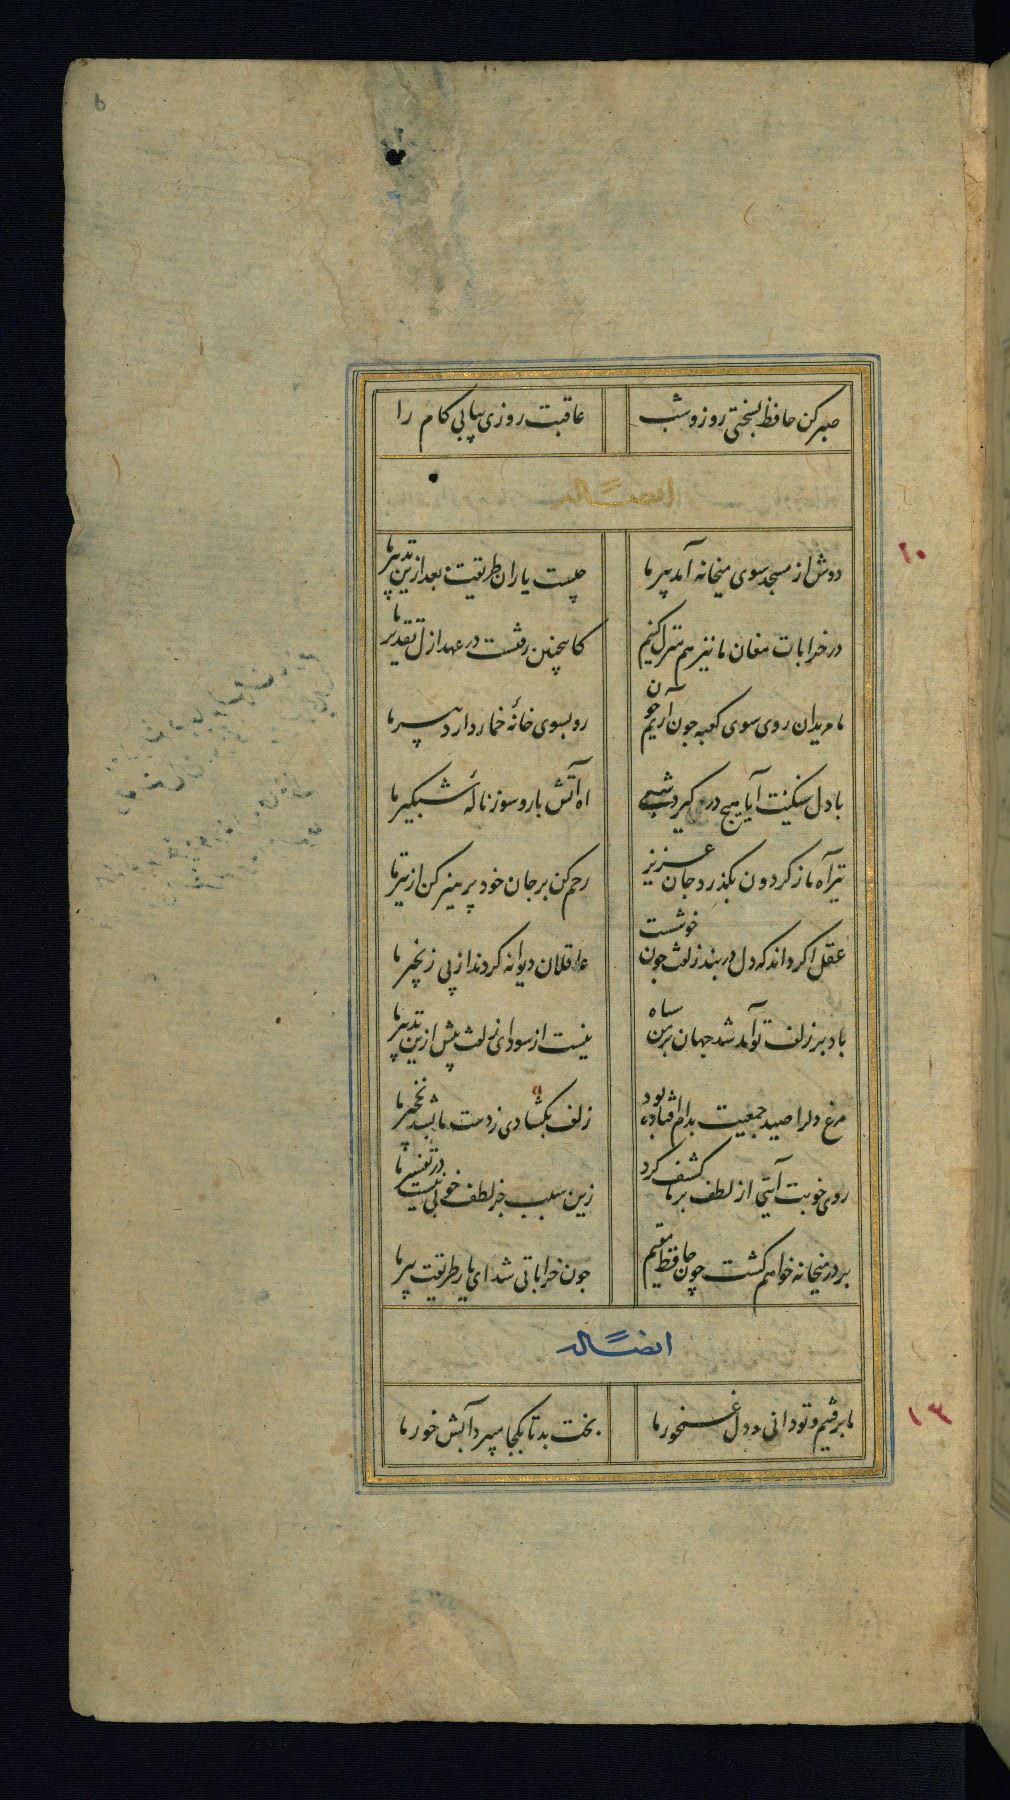 صبر کن حافظ بسختی روز و شب
عاقبت روزی بیابی کام را
ایضاً له
دوش از مسجد سوی میخانه آمد پیر ما
چیست یاران طریقت بعد ازین تدبیر ما
در خرابات مغان ما نیز هم منزل کنیم
کاینچنین رفتست در عهد ازل تقدیر ما
ما مریدان روی سوی کعبه چون آریم چون
رو بسوی خانهٔ خمار دارد پیر ما
با دل سنگینت آیا هیچ در گیرد شبی
آه آتش بار و سوز نالهٔ شبگیر ما
تیر آه ما ز گردون بگذرد جان عزیز
رحم کن بر جان خود پرهیز کن از تیر ما
عقل اگر داند که دل در بند زلفت چون خوشست
عاقلان دیوانه گردند از پی زنجیر ما
باد بر زلف تو آمد شد جهان بر من سیاه
نیست از سودای زلفت بیش ازین تدبیر ما
مرغ دلرا صید جمعیت بدام افتاده بود
زلف بگشادی ز دست ما بشد نخجیر ما
روی خوبت آیتی از لطف بر ما کشف کرد
زین سبب جز لطف و خوبی نیست در تفسیر ما
بر در میخانه خواهم گشت چون حافظ مقیم
چون خراباتی شد ای یار طریقت پیر ما
ایضاً له
ما برفتیم و تو دانی و دل غمخور ما
بخت بد تا بکجا میبرد آبشخور ما
۱۰
۱۳